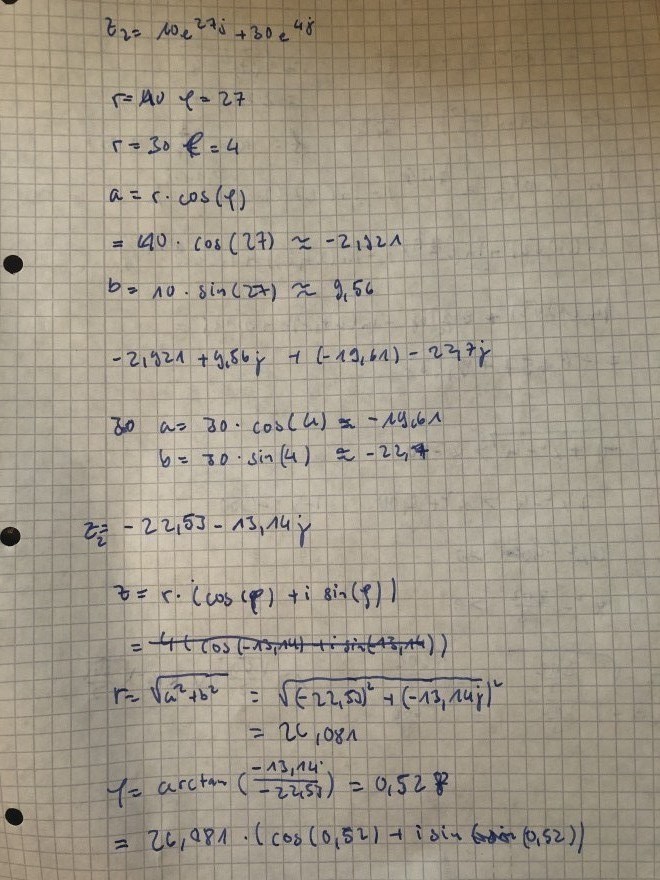 z₂ = 10e^27j + 30e^4j
r = 10 φ = 27
r = 30 φ = 4
a = r · cos(φ)
= 10 · cos(27) ≈ -2,921
b = 10 · sin(27) ≈ 9,56
-2,921 + 9,56j + (-19,61) - 22,7j
30 a = 30 · cos(4) ≈ -19,61
b = 30 · sin(4) ≈ -22,7
z₂ = -22,53 - 13,14j
z = r · (cos(φ) + i sin(φ))
= 4 ( cos(-13,14) + i sin(-13,14))
r = √(a² + b²) = √((-22,53)² + (-13,14j)²)
= 26,081
φ = arctan (-13,14 / -22,53) = 0,52
= 26,081 · (cos(0,52) + i sin (0,52))